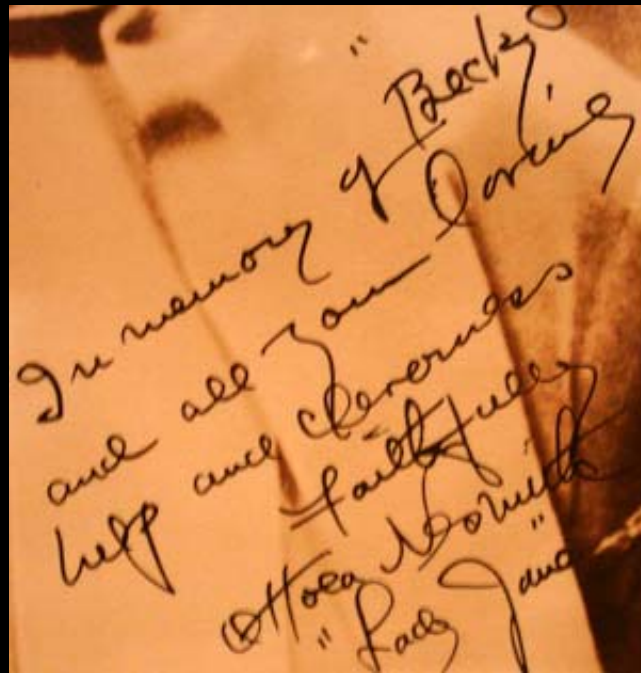 In memory of "Becky"
and all your loving
help and cleverness
Faithfully
Ottola Nesmith
"Lady Jane"